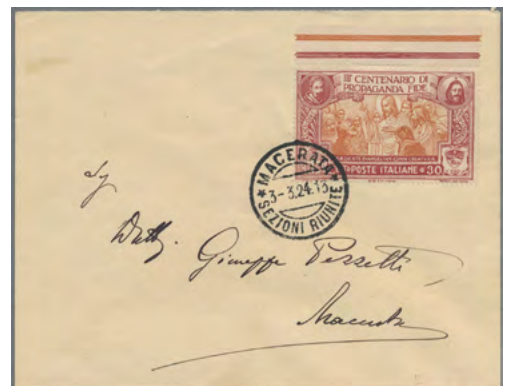 III CENTENARIO DI
PROPAGANDA FIDE
POSTE ITALIANE 30
MACERATA
3-3.24.13
SEZIONI RIUNITE
Dott. Giuseppe Pezzetti
Macerata